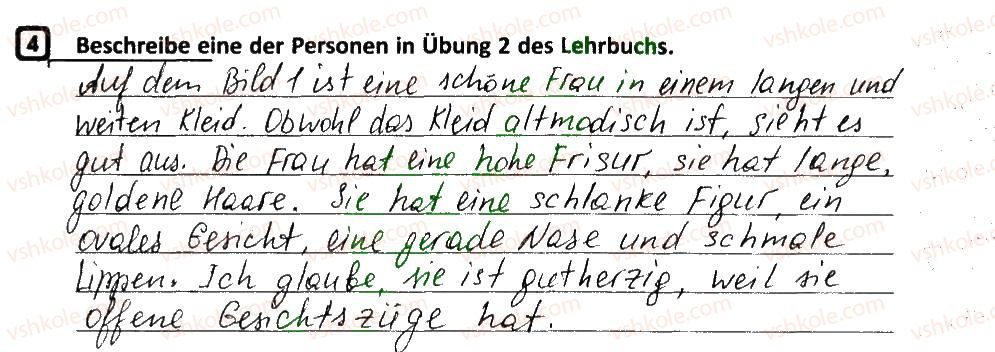 4 Beschreibe eine der Personen in Übung 2 des Lehrbuchs.
Auf dem Bild 1 ist eine schöne Frau in einem langen und
weiten Kleid. Obwohl das Kleid altmodisch ist, sieht es
gut aus. Die Frau hat eine hohe Frisur, sie hat lange,
goldene Haare. Sie hat eine schlanke Figur, ein
ovales Gesicht, eine gerade Nase und schmale
Lippen. Ich glaube, sie ist gutherzig, weil sie
offene Gesichtszüge hat.